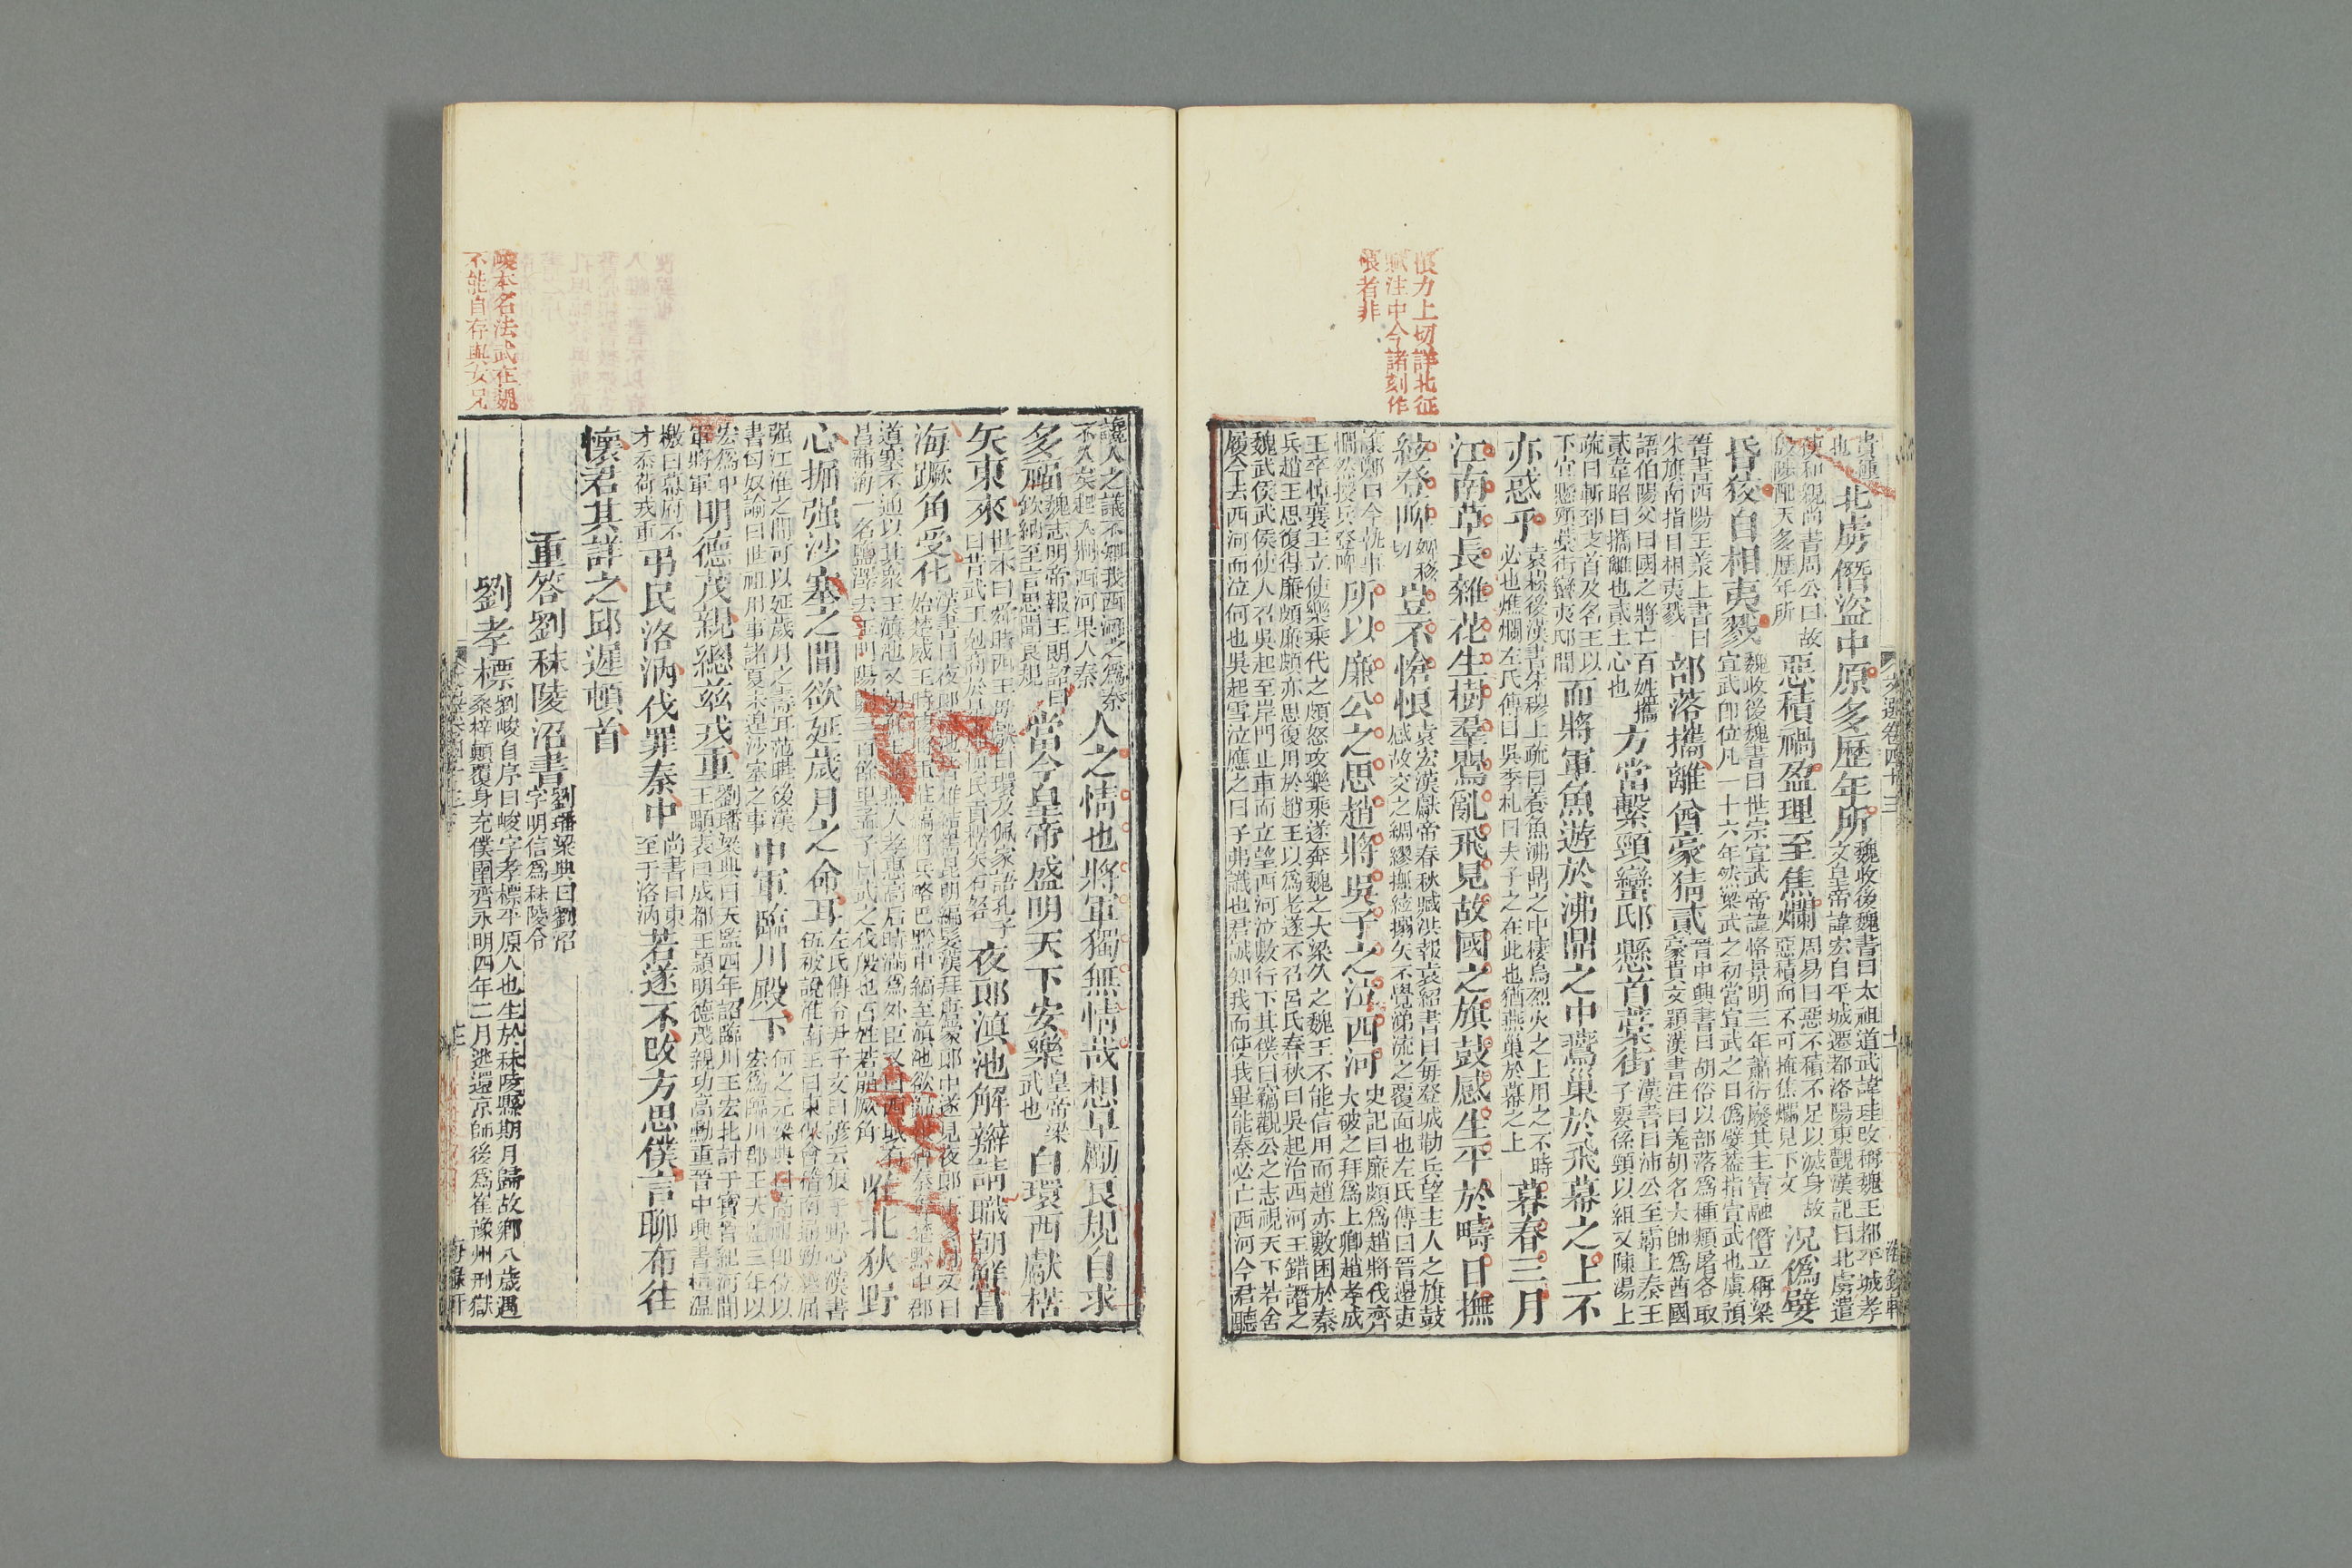 悢力上切詳北征
賦注中今諸刻作
悵者非
貴種
也
北虜僭盜中原多歷年所
魏收後魏書曰太祖道武諱珪改稱魏王都平城孝
文皇帝諱宏自平城遷都洛陽東觀漢記曰北虜遣
使和親尚書周公曰故
殷陟配天多歷年所
惡積禍盈理至焦爛
周易曰惡不積不足以滅身故
惡積而不可掩焦爛見下文
況僞孽
昏狡自相夷戮
魏收後魏書曰世宗宣武帝諱恪景明三年蕭衍廢其主寶融僭立稱梁
宣武即位凡一十六年然梁武之初當宣武之日僞孽蓋指宣武也虞預
晉書西陽王羕上書曰
朱旗南指自相夷戮
部落攜離酋豪猜貳
晉中興書曰胡俗以部落爲種類屠各取
豪貴文穎漢書注曰羗胡名大帥爲酋國
語伯陽父曰國之將亡百姓攜
貳韋昭曰攜離也貳土心也
方當繫頸蠻邸懸首藁街
漢書曰沛公至霸上秦王
子嬰係頸以組又陳湯上
疏曰斬郅支首及名王以
下宜懸頸藁街蠻夷邸間
而將軍魚遊於沸鼎之中鷰巢於飛幕之上不
亦惑乎
袁崧後漢書朱穆上疏曰養魚沸鼎之中棲鳥烈火之上用之不時
必也燋爛左氏傳曰吳季札曰夫子之在此也猶燕巢於幕之上
暮春三月
江南草長雜花生樹羣鸎亂飛見故國之旗鼓感生平於疇日撫
絃登陴
婢移
切
豈不愴悢
袁宏漢獻帝春秋臧洪報袁紹書曰每登城勒兵望主人之旗鼓
感故交之綢繆撫絃搦矢不覺涕流之覆面也左氏傳曰晉邊吏
讓鄭曰今執事
撊然授兵登陴
所以廉公之思趙將吳子之泣西河
史記曰廉頗爲趙將伐齊
大破之拜爲上卿趙孝成
王卒悼襄王立使樂乘代之頗怒攻樂乘遂奔魏之大梁久之魏王不能信用而趙亦數困於秦
兵趙王思復得廉頗廉頗亦思復用於趙王以爲老遂不召呂氏春秋曰吳起治西河王錯譖之
魏武侯武侯使人召吳起至岸門止車而立望西河泣數行下其僕曰竊觀公之志視天下若舍
履今去西河而泣何也吳起雪泣應之曰子弗識也君誠知我而使我畢能秦必亡西河今君聽
讒人之議不知我西河之爲秦
不久矣起入荆西河果入秦
人之情也將軍獨無情哉想早勵良規自求
多福
魏志明帝報王朗詔曰
欽納至言思聞良規
當今皇帝盛明天下安樂
皇帝梁
武也
白環西獻楛
矢東來
世本曰舜時西王母獻白環及佩家語孔子
曰昔武王克商於是肅愼氏貢楛矢石砮
夜郎滇池解辮請職朝鮮昌
海蹶角受化
心掘强沙塞之間欲延歲月之命耳
强江淮之間可以延歲月之壽耳范曄後漢
書匈奴論曰世祖用事諸夏未遑沙塞之事
中軍臨川殿下
宏爲中
軍將軍
明德茂親總兹戎重
劉璠梁典曰天監四年詔臨川王宏北討干寶晉紀河間
王顒表曰成都王穎明德茂親功高勳重晉中興書桓溫
檄曰幕府不
才忝荷戎重
弔民洛汭伐罪秦中
尚書曰東
至于洛汭
若遂不改方思僕言聊布往
懷君其詳之邱遲頓首
重答劉秣陵沼書
劉璠梁典曰劉沼
字明信爲秣陵令
劉孝標
劉峻自序曰峻字孝標平原人也生於秣陵縣期月歸故鄉八歲遇
桑梓顛覆身充僕圉齊永明四年二月逃還京師後爲崔豫州刑獄
陵本名法武在魏
不能自存與女兄